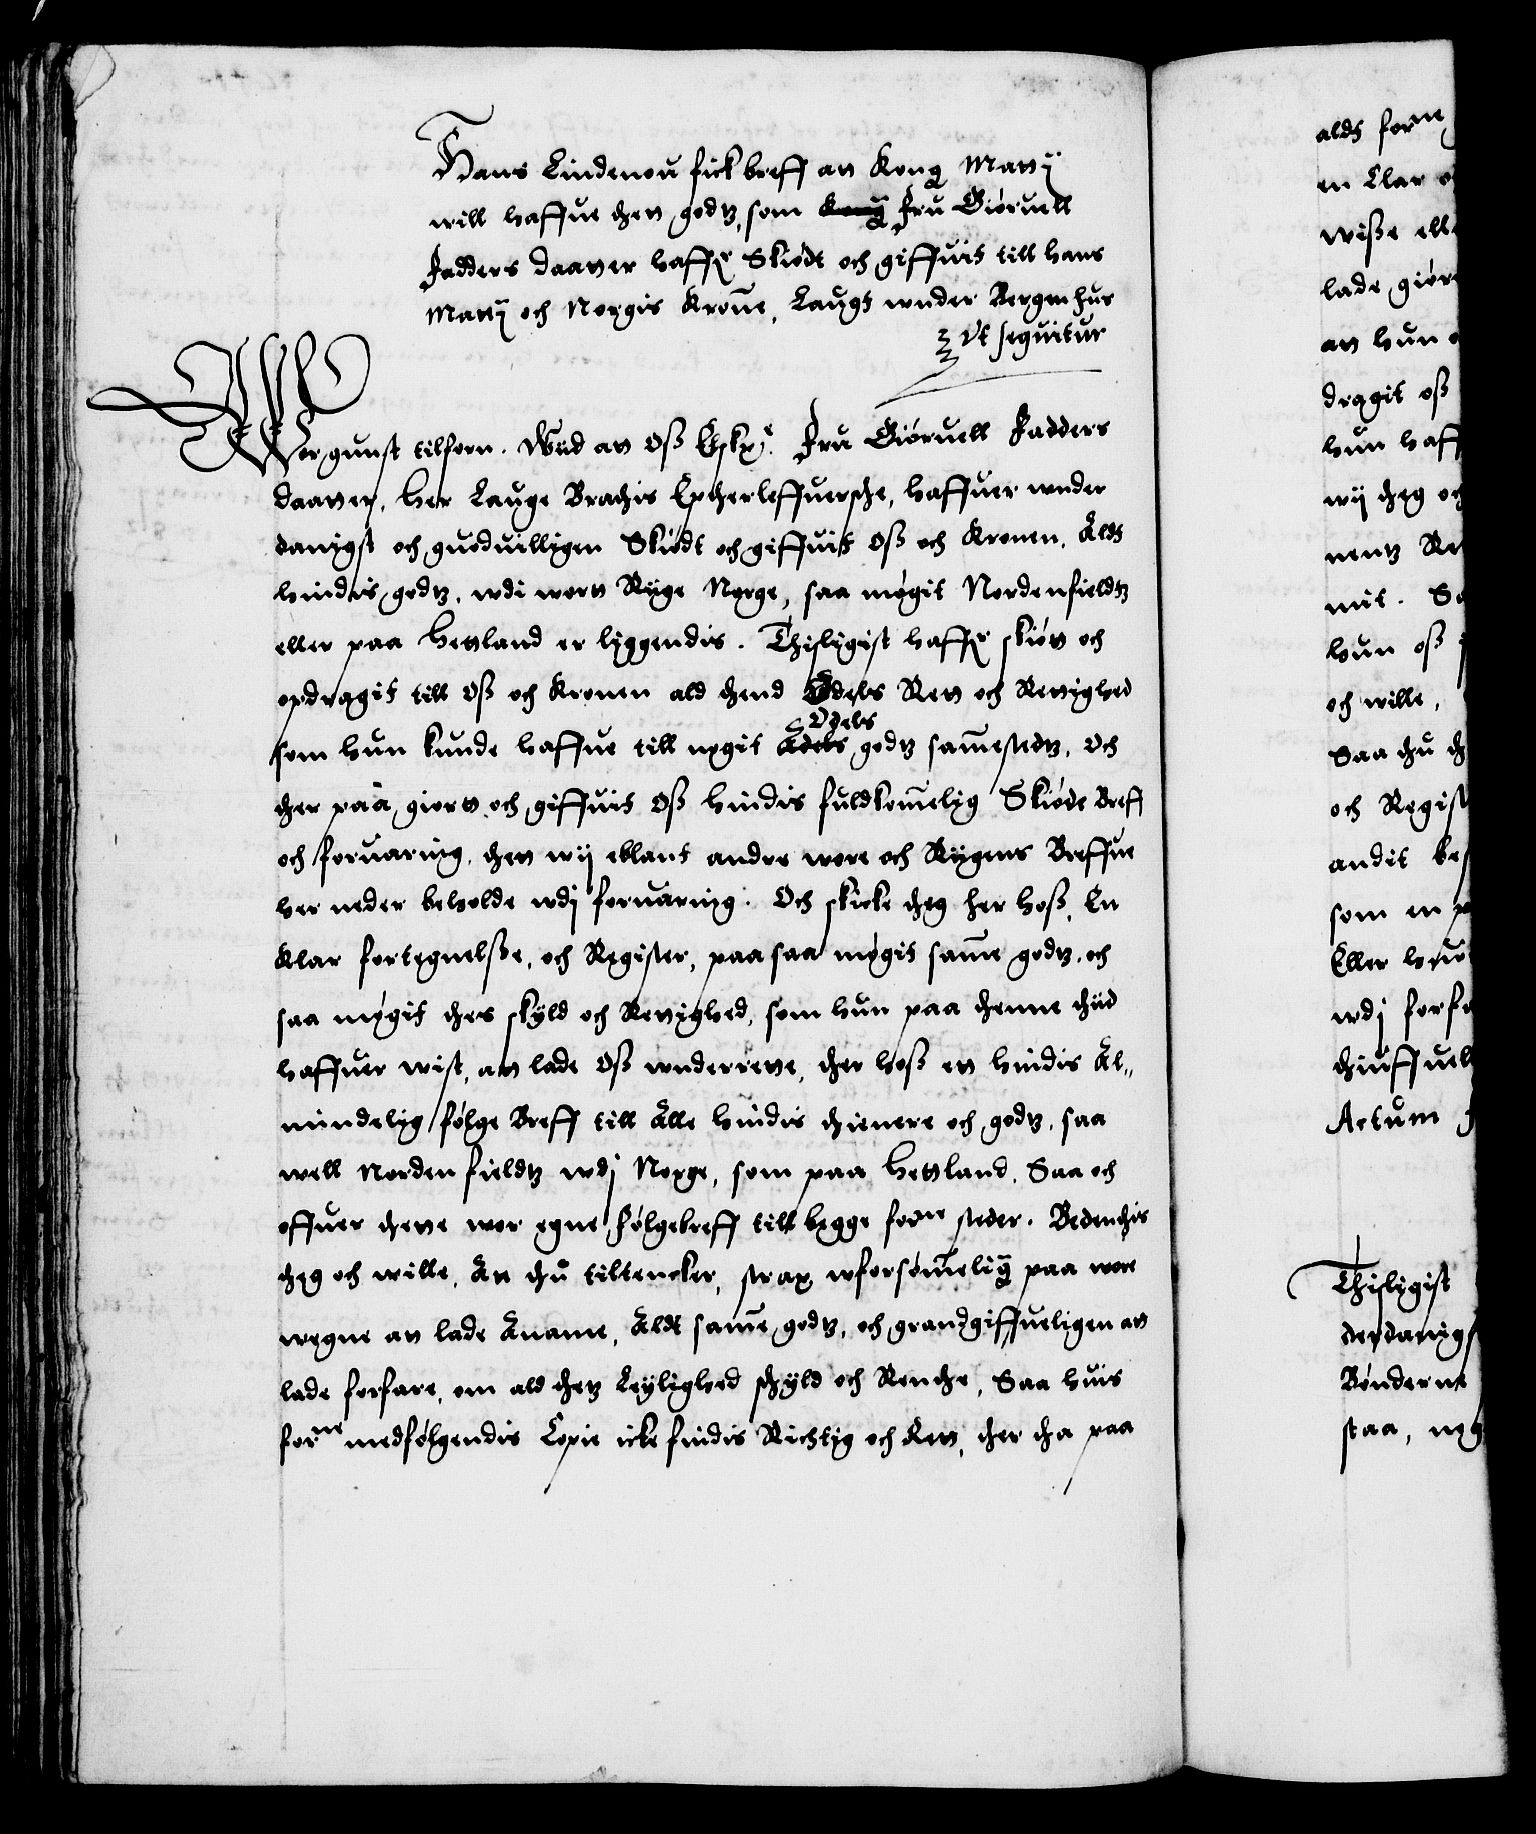 Hans Lindenou fick breff att Kong Matt ij
will haffue thett godtz, som Kong Fru Giøruell
Fadders daatter haffr Skiødt och giffuit till hans
Matt ij och Norgis Krone, Laugt wnder Bergenhus
Vt sequitur
Wor gunst tilforn. Wiid att oss Elskr. Fru Giøruell Fadders
daatter, her Lauge Brachis Effterleffuersche, haffuer wnder
danigst och guoduilligen Skiødt och giffuit oss och Kronen, Aldt
hindis godtz, wdi wortt Riige Norge, saa møgit Nordenfieldtz
eller paa Hettland er liggendis. Thisligist haffr skiøtt och
opdragit till oss och Kronen ald thend Odels Rett och Rettighed
som hun kunde haffue till nogit Adels godtz samestedtz, Och
Odels
ther paa giortt och giffuit oss hindis fuldkomelig Skiøde Breff
och foruaring, thett wij eblant andre wore och Riigens Breffue
her neder beholde wdj foruaring. Och skicke theg her hoss, En
klar fortegnelsse, och Register, paa saa møgit same godtz, och
saa møgit thes skyld och Rettighed, som hun paa thenne thiid
haffuer wist, att lade oss wnderrette, ther hoss ett hindis Al„
mindelig følge Breff till Alle hindis thienere och godtz, saa
well Norden fieldtz wdj Norge, som paa Hettland, Saa och
offuer thette wor egne følgebreff till begge forne steder. Bedendis
theg och wille, At thu tiltencker, strax wforsømeliig paa wore
wegne att lade Aname, Aldt same godtz, och grandgiffueligen att
lade forfare, om ald thetz Leylighed skyld och Renthe, Saa huis
forne medfølgendis Copie icke findis Richtig och Rett, ther tha paa
alds forne
en Clar
wisse elle
lade giøre
att hun
dragit oss
hun haff
wij theg och
mit. Sa
hun oss
och wille,
Saa thu th
och Regist
andit
som en
Eller
wdj forfa
Actum
Thisligist
derdanigs
Bønderne
staa, nog